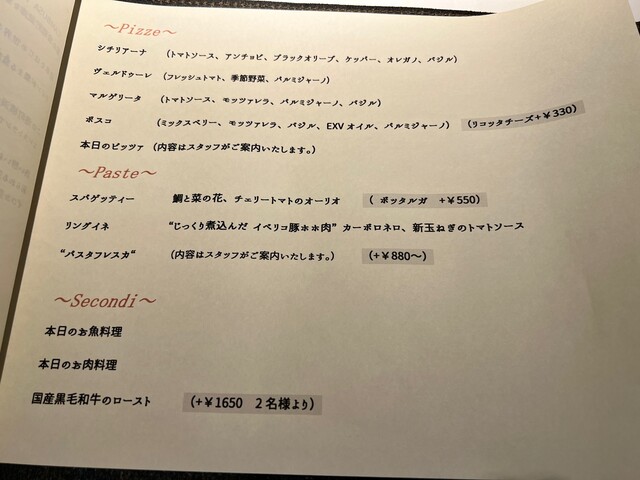 ～Pizze～
シチリアーナ （トマトソース、アンチョビ、ブラックオリーブ、ケッパー、オレガノ、バジル）
ヴェルドゥーレ （フレッシュトマト、季節野菜、パルミジャーノ）
マルゲリータ （トマトソース、モッツァレラ、パルミジャーノ、バジル）
ボスコ （ミックスベリー、モッツァレラ、バジル、EXV オイル、パルミジャーノ） （リコッタチーズ+￥330）
本日のピッツァ （内容はスタッフがご案内いたします。）
～Paste～
スパゲッティー 鯛と菜の花、チェリートマトのオーリオ （ ボッタルガ +￥550）
リングイネ “じっくり煮込んだ イベリコ豚ホホ肉” カーボロネロ、新玉ねぎのトマトソース
“パスタフレスカ“ （内容はスタッフがご案内いたします。） （+￥880～）
～Secondi～
本日のお魚料理
本日のお肉料理
国産黒毛和牛のロースト （+￥1650 2 名様より）